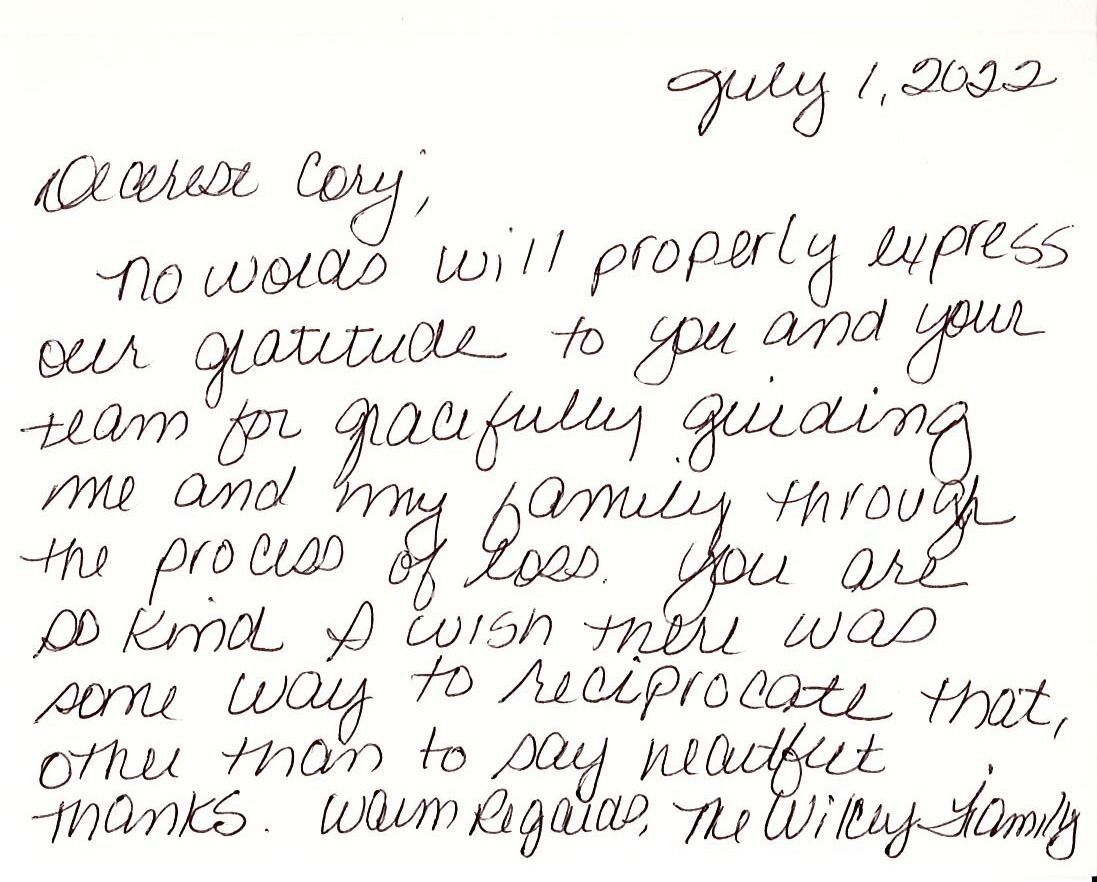 July 1, 2022
Dearest Cory,
No words will properly express
our gratitude to you and your
team for gracefully guiding
me and my family through
the process of loss. You are
so kind I wish there was
some way to reciprocate that,
other than to say heartfelt
thanks. Warm Regards, The Wilcey Family